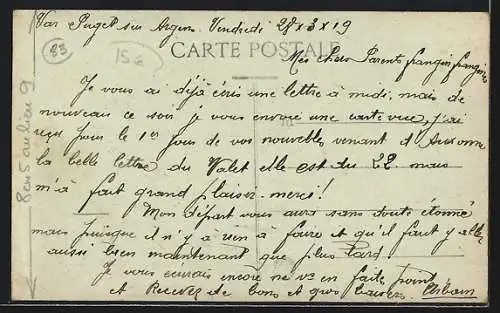 Var Puget sur Argens. Vendredi 28 x 3 x 19
83
15 €
CARTE POSTALE
Mes chers Parents frangin frangines
Je vous ai déjà écris une lettre à midi, mais de
nouveau ce soir je vous envoie une carte vue, j'ai
reçu pour le 1er jour de vos nouvelles, venant d'Auxonne
la belle lettre du Valet elle est du 22. mais
m'a fait grand plaisir. merci!
Mon départ vous aura sans doute étonné
mais puisque il n'y a rien à faire et qu'il faut y aller
aussi bien maintenant que plus tard
Je vous écrirais encore ne vs en faite point
et Recevez de bons et gros baisers. Urbain